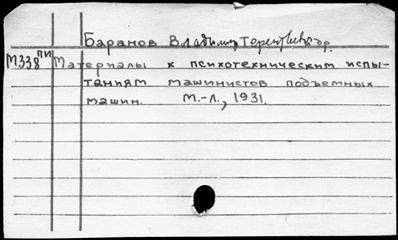 Баранов Владимир Терентьевич
М338 ПИ Материалы к психотехническим испы-
таниям машинистов подъемных
машин. М.-Л., 1931.